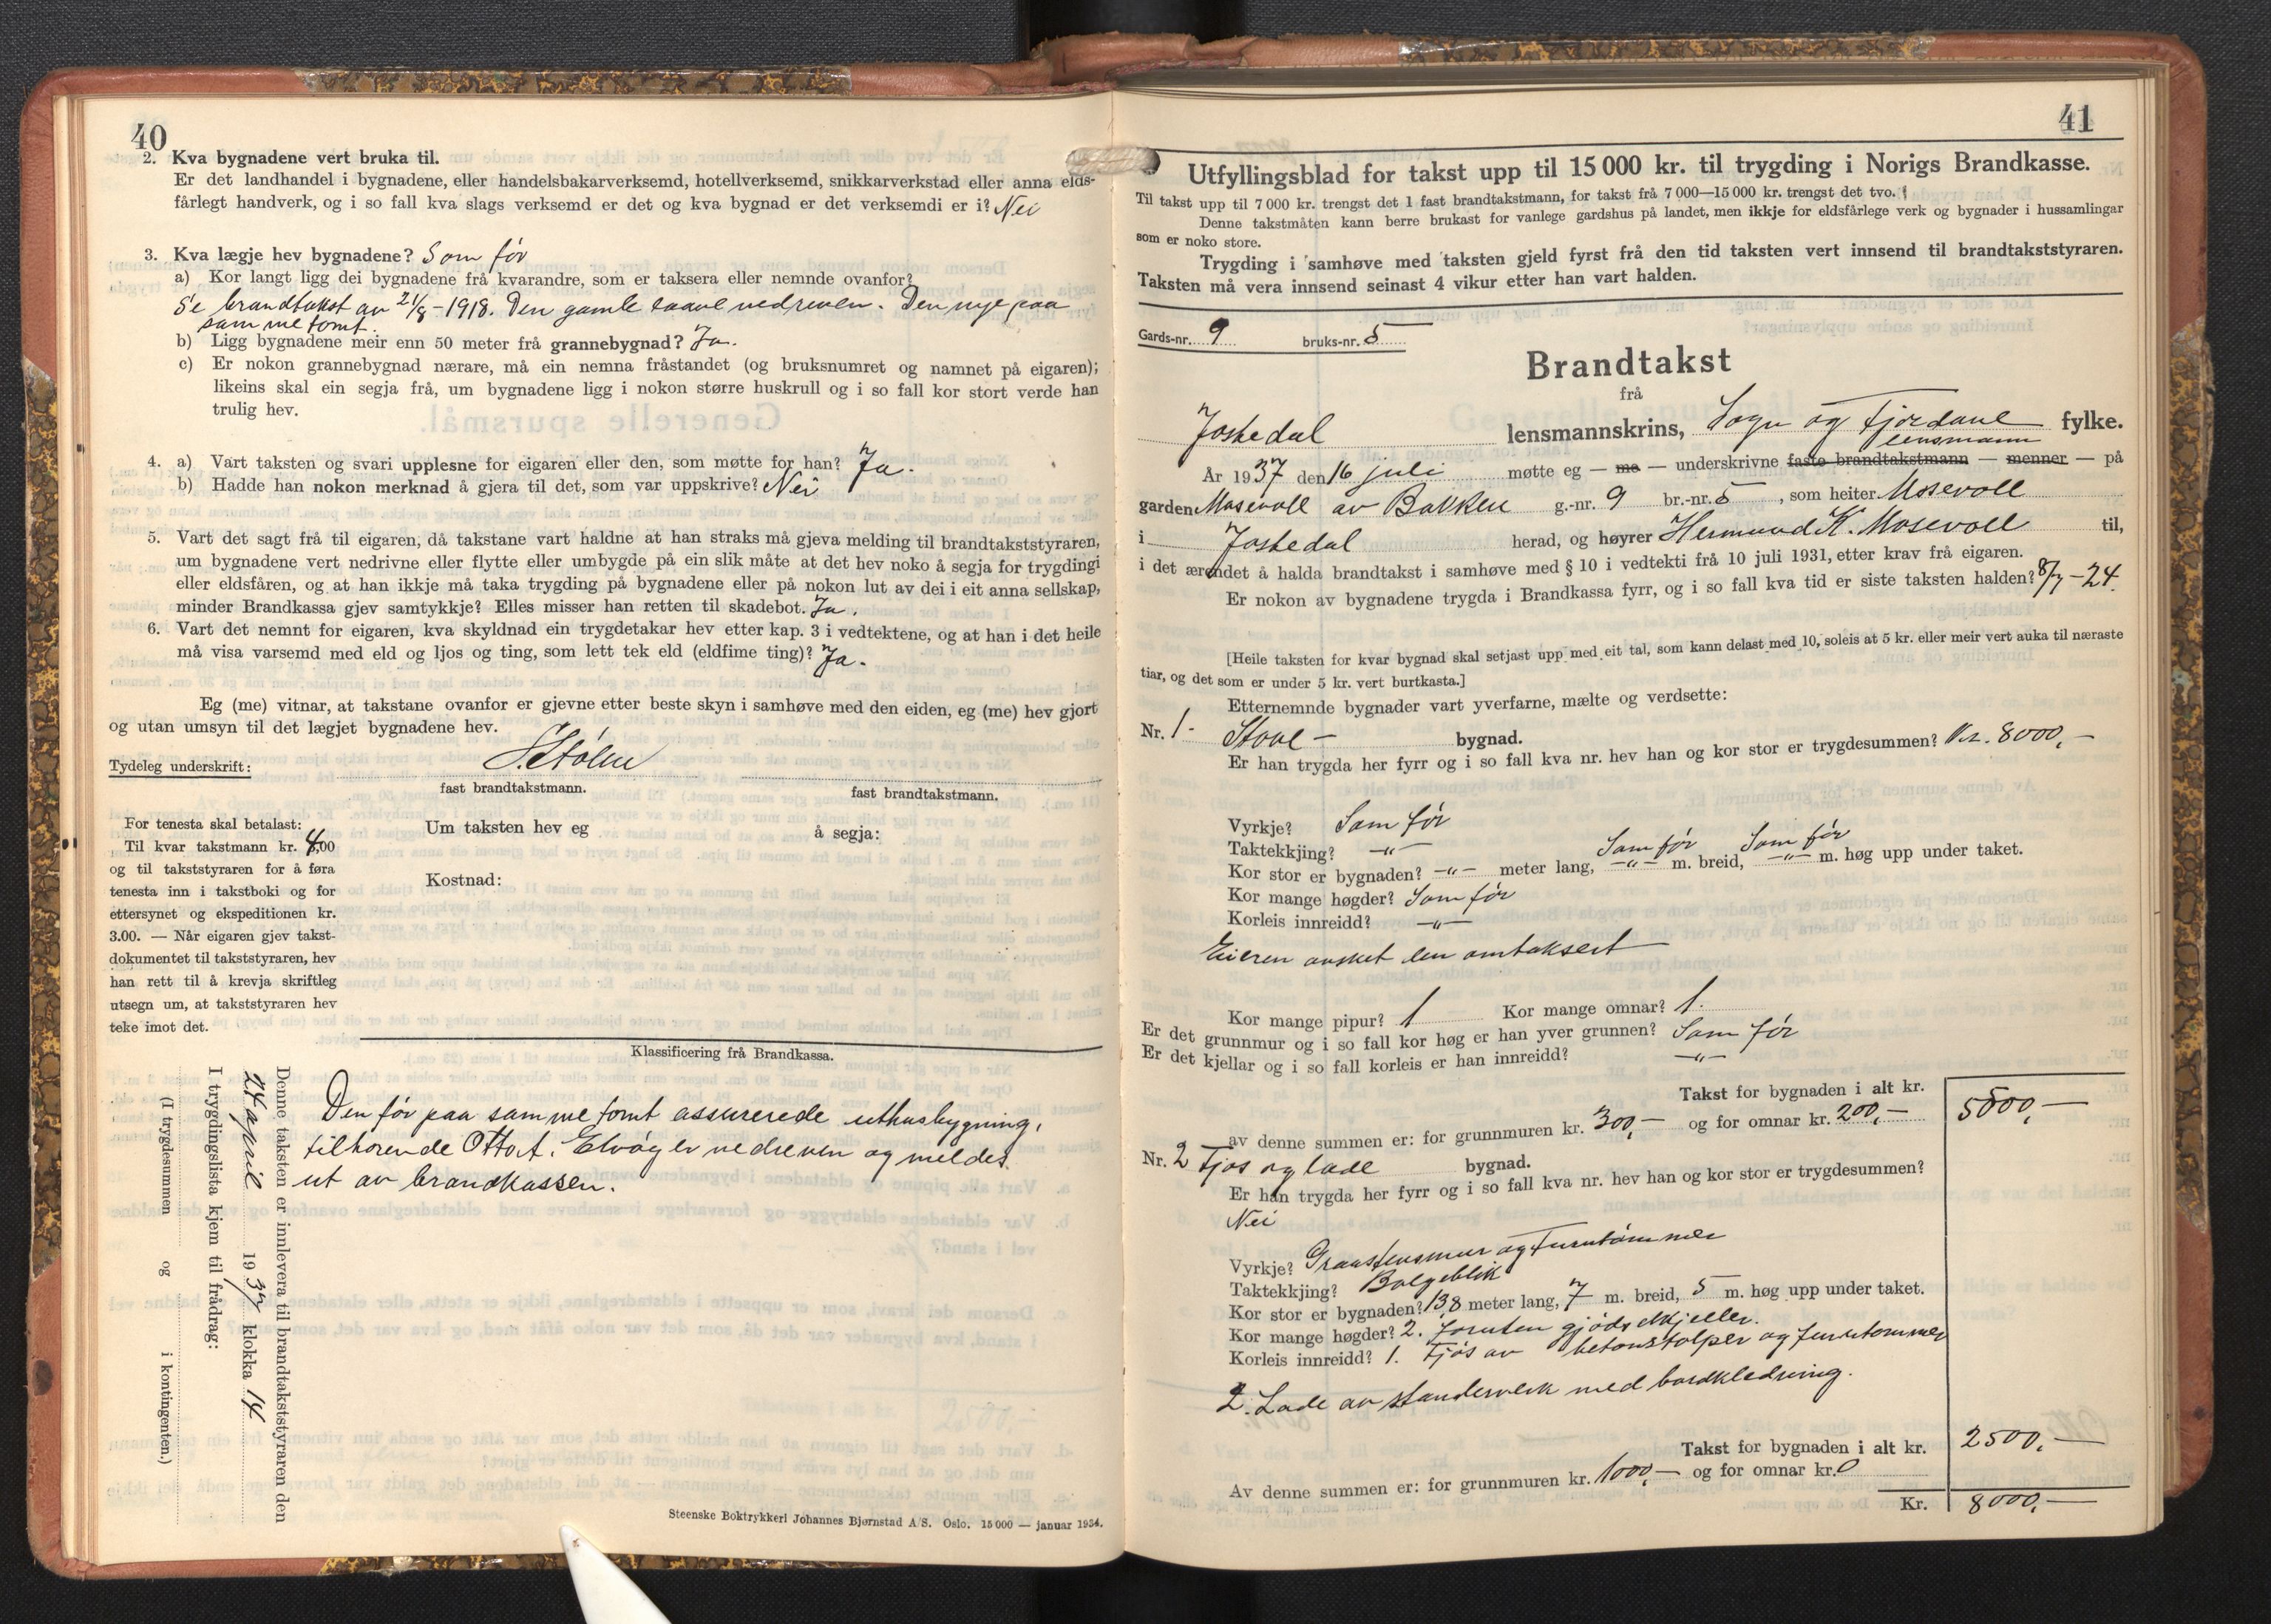 40
2. Kva bygnadene vert bruka til.
Er det landhandel i bygnadene, eller handelsbakarverksemd, hotellverksemd, snikkarverkstad eller anna elds-
fårlegt handverk, og i so fall kva slags verksemd er det og kva bygnad er det verksemdi er i? Nei
3. Kva lægje hev bygnadene? Som før
a) Kor langt ligg dei bygnadene frå kvarandre, som er taksera eller nemnde ovanfor?
Se brandtakst av 21/8-1918. Den gamle laave nedreven. Den nye paa
samme tomt.
b) Ligg bygnadene meir enn 50 meter frå grannebygnad? Ja.
c) Er nokon grannebygnad nærare, må ein nemna fråstandet (og bruksnumret og namnet på eigaren);
likeins skal ein segja frå, um bygnadene ligg i nokon større huskrull og i so fall kor stort verde han
trulig hev.
4. a) Vart taksten og svari upplesne for eigaren eller den, som møtte for han? Ja.
b) Hadde han nokon merknad å gjera til det, som var uppskrive? Nei
5. Vart det sagt frå til eigaren, då takstane vart haldne at han straks må gjeva melding til brandtakststyraren,
um bygnadene vert nedrivne eller flytte eller umbygde på ein slik måte at det hev noko å segja for trygdingi
eller eldsfåren, og at han ikkje må taka trygding på bygnadene eller på nokon lut av dei i eit anna sellskap,
minder Brandkassa gjev samtykkje? Elles misser han retten til skadebot. Ja.
6. Vart det nemnt for eigaren, kva skyldnad ein trygdetakar hev etter kap. 3 i vedtektene, og at han i det heile
må visa varsemd med eld og ljos og ting, som lett tek eld (eldfime ting)? Ja.
Eg (me) vitnar, at takstane ovanfor er gjevne etter beste skyn i samhøve med den eiden, eg (me) hev gjort
og utan umsyn til det lægjet bygnadene hev.
Tydeleg underskrift: Stølen
fast brandtakstmann. fast brandtakstmann.
For tenesta skal betalast:
Til kvar takstmann kr. 4,00
og til takststyraren for å føra
tenesta inn i takstboki og for
ettersynet og ekspeditionen kr.
3.00. — Når eigaren gjev takst-
dokumentet til takststyraren, hev
han rett til å krevja skriftleg
utsegn um, at takststyraren hev
teke imot det.
Um taksten hev eg å segja:
Kostnad:
Klassificering frå Brandkassa.
Den før paa samme tomt assurerede uthusbygning,
tilhørende Otto A. Elvøy er nedreven og meldes
ut av brandkassen.
Denne taksten er innlevera til brandtakststyraren den
24 april 1937 klokka 14
I trygdingslista kjem til frådrag:
(I trygdesummen og i kontingenten.)
Steenske Boktrykkeri Johannes Bjørnstad A/S. Oslo. 15 000 — januar 1934.
41
Utfyllingsblad for takst upp til 15 000 kr. til trygding i Norigs Brandkasse.
Til takst upp til 7 000 kr. trengst det 1 fast brandtakstmann, for takst frå 7 000—15 000 kr. trengst det tvo.
Denne takstmåten kann berre brukast for vanlege gardshus på landet, men ikkje for eldsfårlege verk og bygnader i hussamlingar
som er noko store.
Trygding i samhøve med taksten gjeld fyrst frå den tid taksten vert innsend til brandtakststyraren.
Taksten må vera innsend seinast 4 vikur etter han vart halden.
Gards-nr. 9 bruks-nr. 5
Brandtakst
frå
Jostedal lensmannskrins, Sogn og Fjordane fylke.
lensmann
År 1937 den 16 juli møtte eg — me — underskrivne faste brandtakstmann — menner — på
garden Mosevoll av Bakken g.-nr. 9 br.-nr. 5, som heiter Mosevoll
i Jostedal herad, og høyrer Hermund K. Mosevoll til,
i det ærendet å halda brandtakst i samhøve med § 10 i vedtekti frå 10 juli 1931, etter krav frå eigaren.
Er nokon av bygnadene trygda i Brandkassa fyrr, og i so fall kva tid er siste taksten halden? 8/7-24.
[Heile taksten for kvar bygnad skal setjast upp med eit tal, som kann delast med 10, soleis at 5 kr. eller meir vert auka til næraste
tiar, og det som er under 5 kr. vert burtkasta.]
Etternemnde bygnader vart yverfarne, mælte og verdsette:
Nr. 1. Stove- bygnad.
Er han trygda her fyrr og i so fall kva nr. hev han og kor stor er trygdesummen? Kr. 8000,-
Vyrkje? Som før
Taktekkjing? -"-
Som før Som før
Kor stor er bygnaden? -"- meter lang, -"- m. breid, -"- m. høg upp under taket.
Kor mange høgder? Som før
Korleis innreidd? -"-
Eieren ønsket den omtaksert
Kor mange pipur? 1 Kor mange omnar? 1.
Er det grunnmur og i so fall kor høg er han yver grunnen? Som før
Er det kjellar og i so fall korleis er han innreidd? -"-
Takst for bygnaden i alt kr. 5500,-
av denne summen er: for grunnmuren kr. 300,- og for omnar kr. 200,-
Nr. 2 Fjøs og lade bygnad.
Er han trygda her fyrr og i so fall kva nr. hev han og kor stor er trygdesummen?
Nei
Vyrkje? Graastensmur og furutømmer
Taktekkjing? Bølgeblik
Kor stor er bygnaden? 13,8 meter lang, 7 m. breid, 5 m. høg upp under taket.
Kor mange høgder? 2. foruten gjødselkjeller.
Korleis innreidd? 1. Fjøs av betonstolper og furutømmer
2. Lade av standerverk med bordkledning.
Takst for bygnaden i alt kr. 2500,-
Av denne summen er: for grunnmuren kr. 1000,- og for omnar kr. 0
Kr. 8000,-